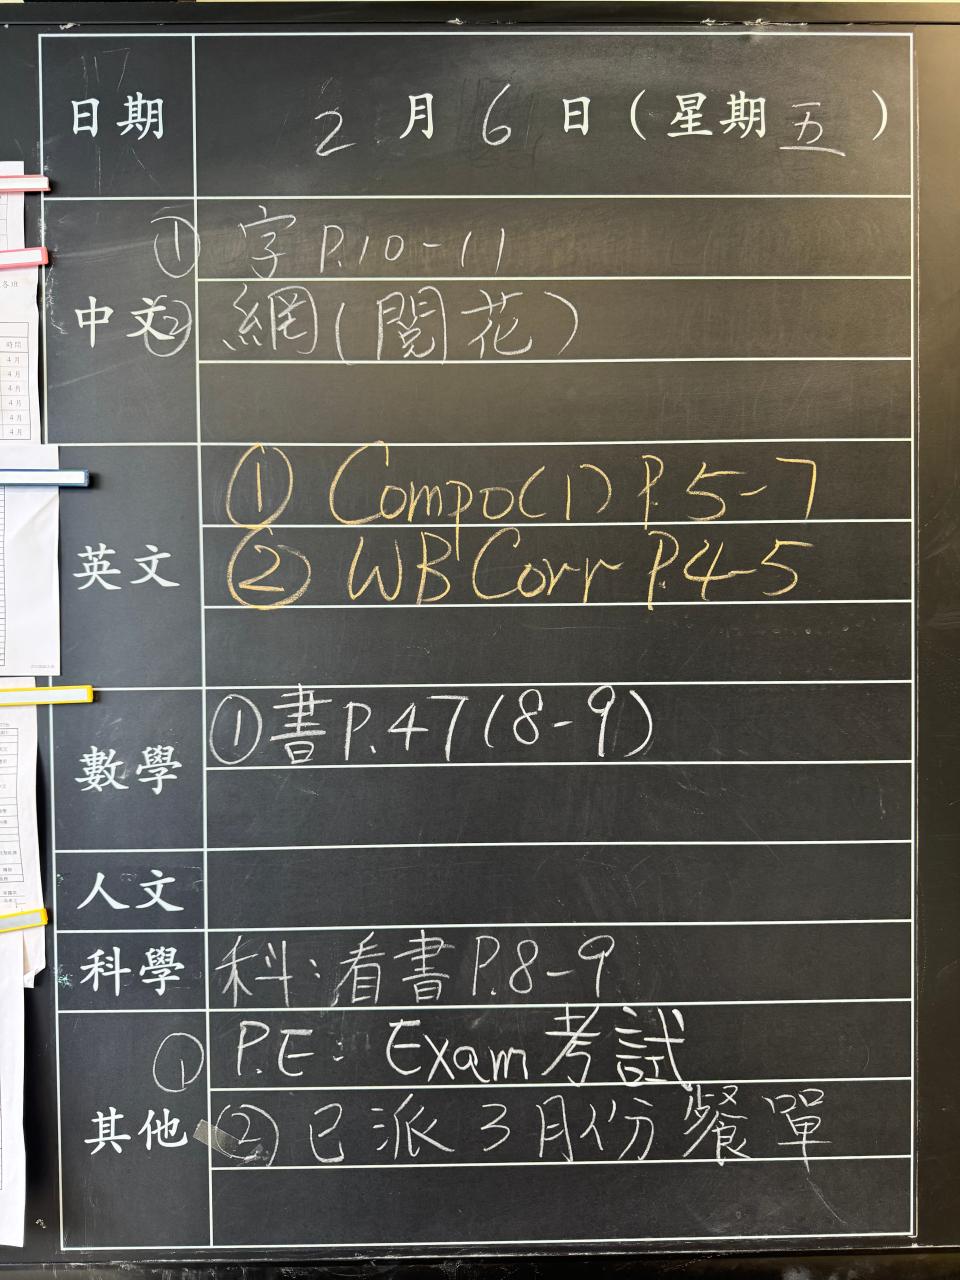 日期 2月6日(星期五)
中文
① 字 P.10-11
② 網(閱花)
英文
① Compo(1) P.5-7
② WB Corr P.4-5
數學
① 書 P.47(8-9)
人文
科學
科:看書 P.8-9
其他
① P.E: Exam 考試
② 已派3月份餐單
時間
4月
4月
4月
4月
4月
4月